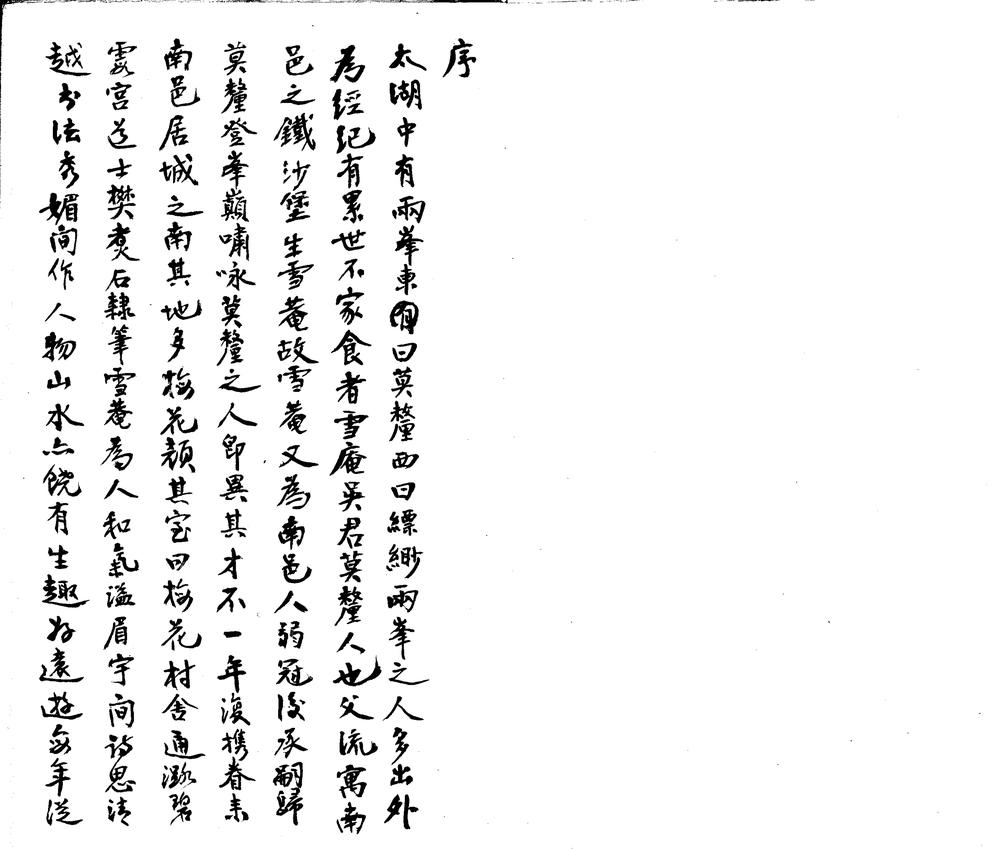 序
太湖中有兩峯東曰莫釐西曰縹緲兩峯之人多出外
為經紀有累世不家食者雪庵吳君莫釐人也父流寓南
邑之鐵沙堡生雪菴故雪菴又為南邑人弱冠後承嗣歸
莫釐登峯巔嘯咏莫釐之人即異其才不一年復携眷来
南邑居城之南其地多梅花顏其室曰梅花村舍通潞碧
霞宮道士樊煑石隸筆雪菴為人和氣溢眉宇间詩思清
越书法秀媚间作人物山水亦饒有生趣好遠遊每年從